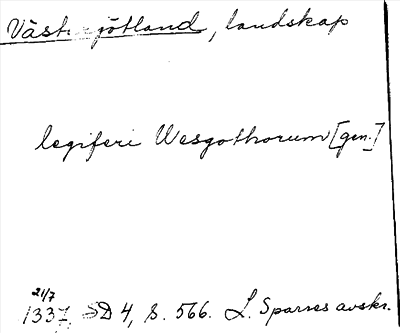 Västergötland, landskap
legiferi Wesgothorum [gen.]
21/7
1337. SD 4, s. 566. L. Sparres avskr.